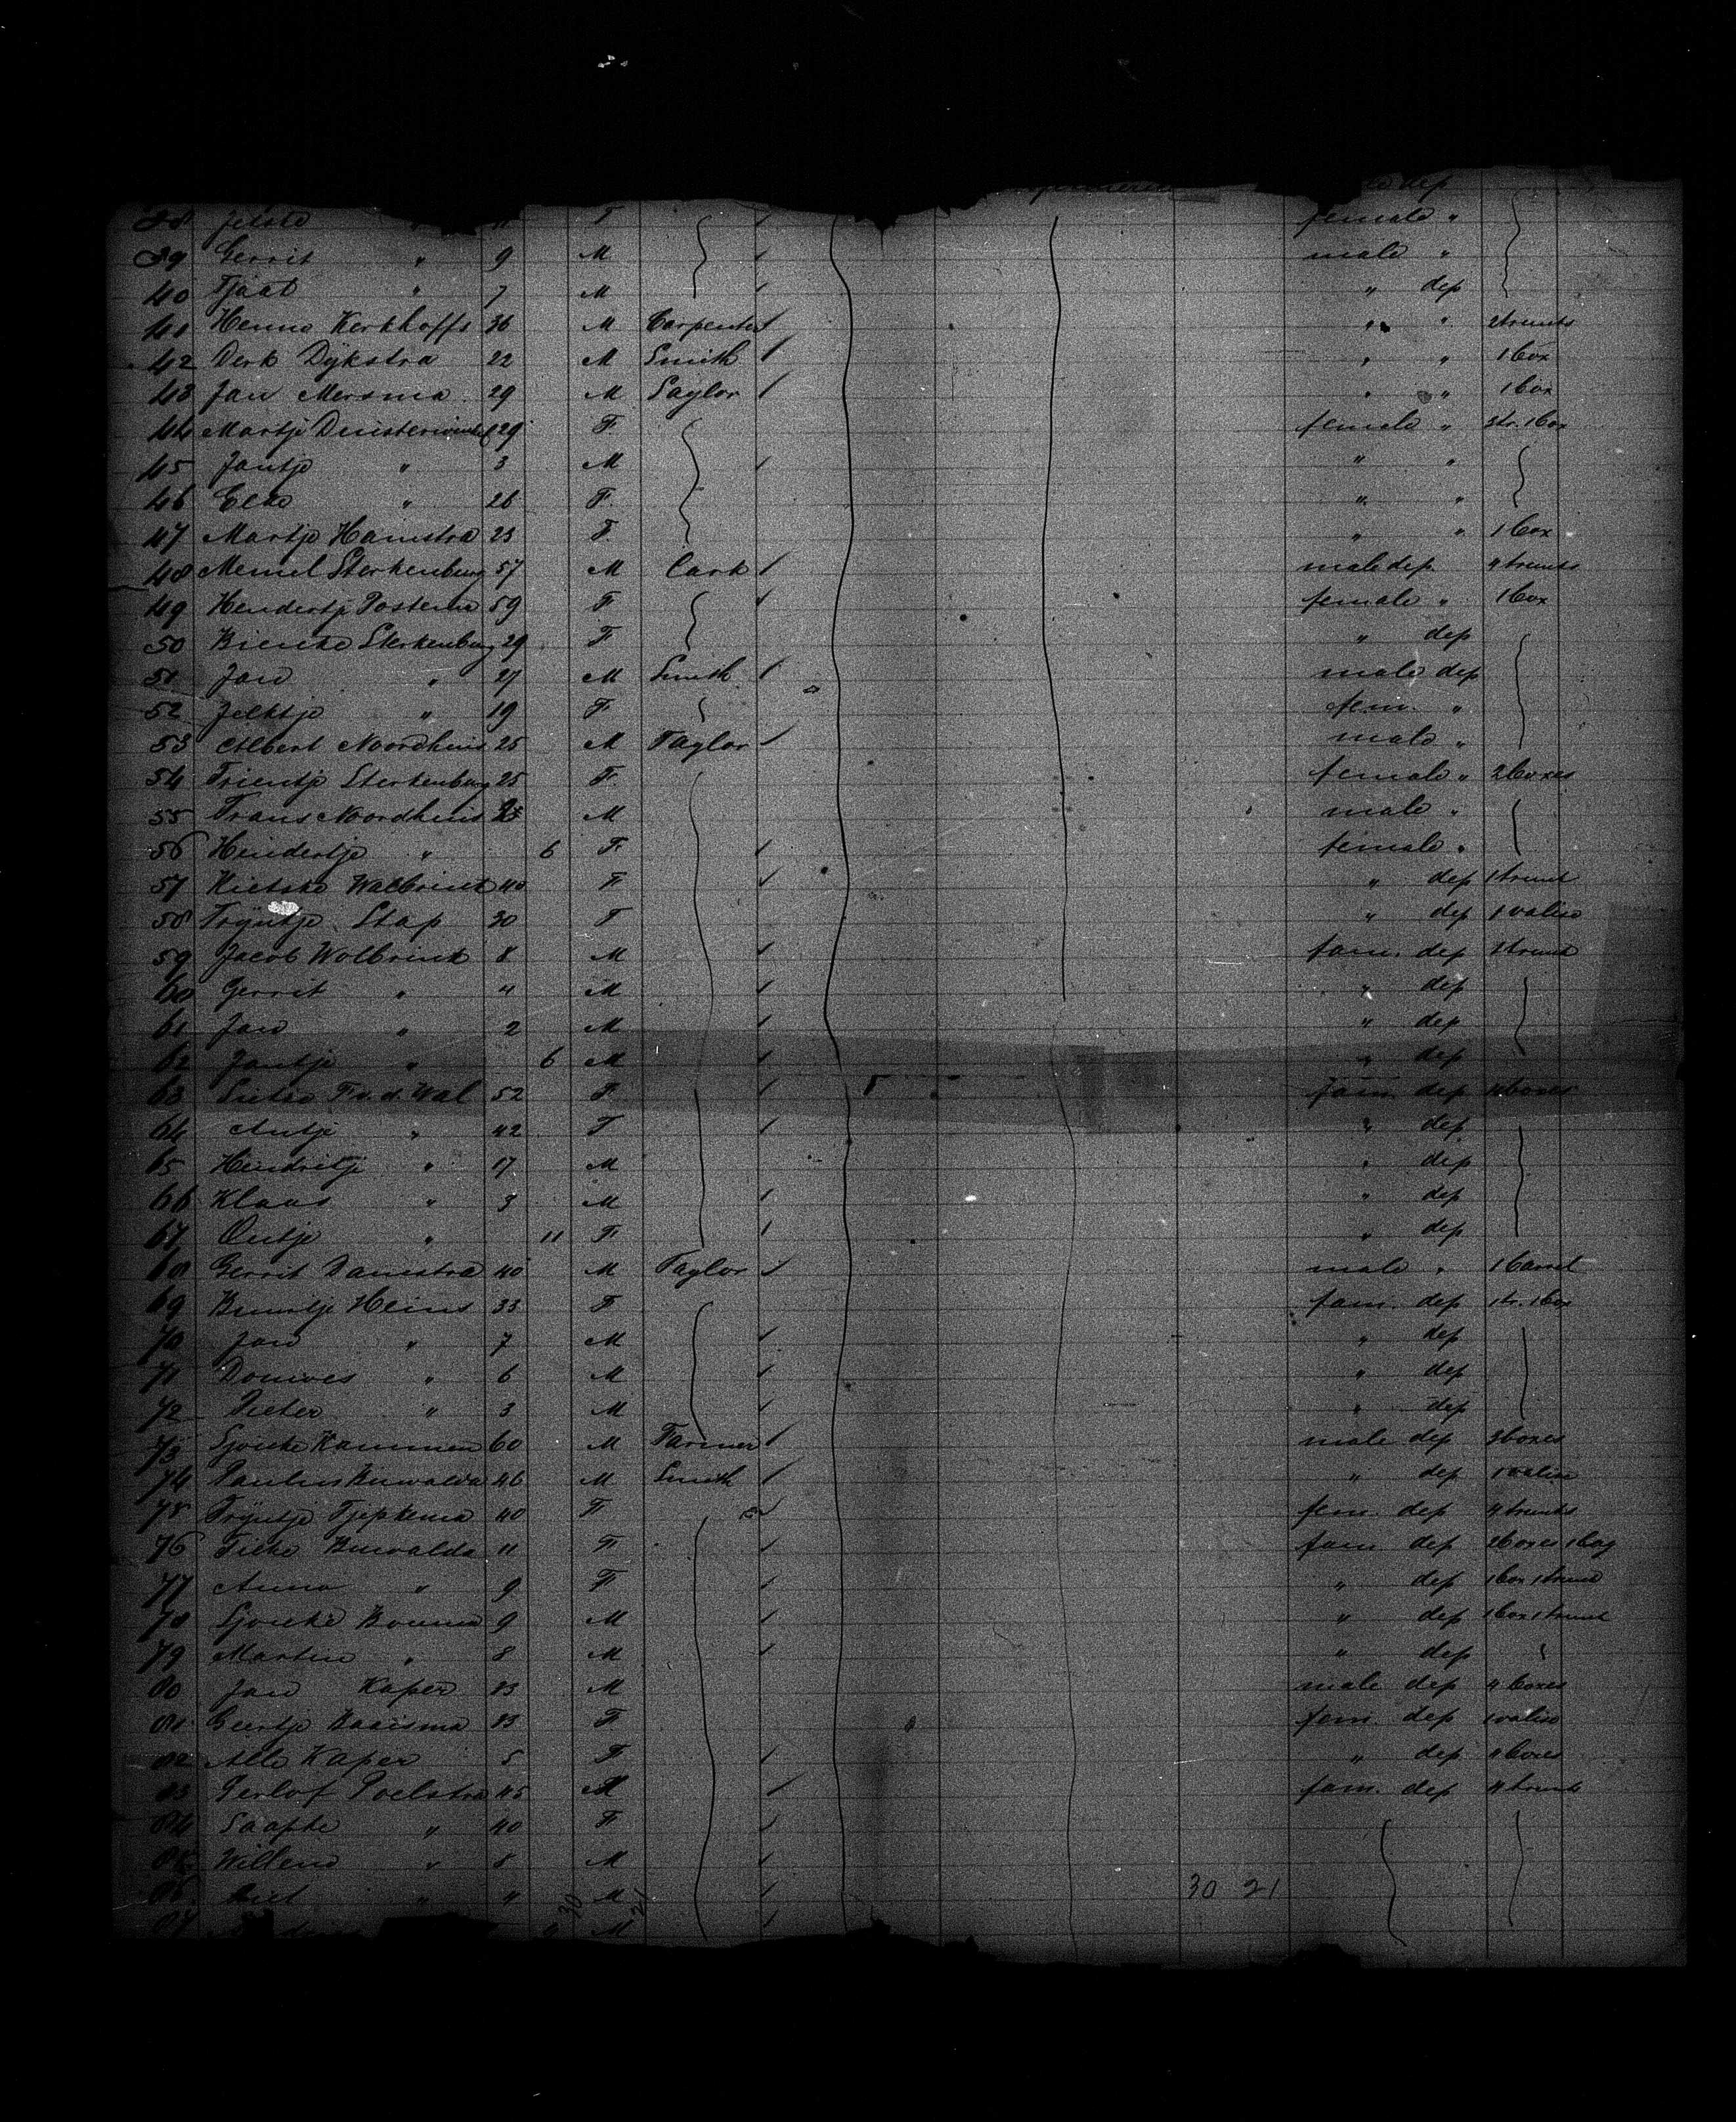 dep
38 Jelste " 11 F female "
39 Gerrit " 9 M male "
40 Tjaal " 7 M " dep
41 Henno Kerkhoffs 36 M Carpenter " " 2 trunks
42 Derk Dÿkstra 22 M Smith " " 1 box
43 Jan Mersma 29 M Taylor " " 1 box
44 Martje 29 F. female " 3 tr. 1 box
45 Jantje " 3 M " "
46 Elke " 26 F. " "
47 Martje Hamstra 23 F. " " 1 box
48 Memel Sterkenburg 57 M Cark male dep. 4 trunks
49 Hendertje Postema 59 F female " 1 box
50 Bienke Sterkenburg 29 F " dep
51 Jan " 27 M Smith male dep
52 Jelktje " 19 F fem. "
53 Albert Noordhuis 25 M Taylor male "
54 Trientje Sterkenburg 25 F. female " 2 boxes
55 Frans Noordhuis M male "
56 Hendertje " 6 F. female "
57 Hietske Walbrink 40 F " dep 1 trunk
58 Trÿntje Stap 30 F " dep 1 valise
59 Jacob Wolbrink 8 M fam. dep trunk
60 Gerrit " " M " dep
61 Jan " 2 M " dep
62 Jantje " 6 M " dep
63 F. v. d. Wal 52 F fam. dep 4 boxes
64 Antje " 42 F " dep
65 Hendritje " 17 M " dep
66 Klaas " 3 M " dep
67 Ontje " 11 F " dep
68 Gerrit Damstra 40 M Taylor male " 1 barrel
69 Heins 33 F fam. dep 1 tr. 1 box
70 Jan " 7 M " dep
71 Douwes " 6 M " dep
72 Pieter " 3 M " dep
73 Sjouke Kammen 60 M Farmer male dep 3 boxes
74 Paulus Buwalda 46 M Smith " dep 1 valise
75 Trÿntje Tjepkema 40 F fem. dep 4 trunks
76 Tieke Buwalda 11 F fam dep 2 boxes 1 bag
77 Anna " 9 F " dep 1 box 1 trunk
78 Sjouke Bouma 9 M " dep 1 box 1 trunk
79 Martin " 8 M " dep "
80 Jan Kaper 33 M male dep 4 boxes
81 Geertje Baaisma 33 F fem. dep 1 valise
82 Alle Kaper 5 F " dep 4 boxes
83 Gerlof Poelstra 45 M fam. dep 4 trunks
84 Saapke " 40 F
85 Willem " 8 M
86 Piet " " M 30 21
87 M
30 21